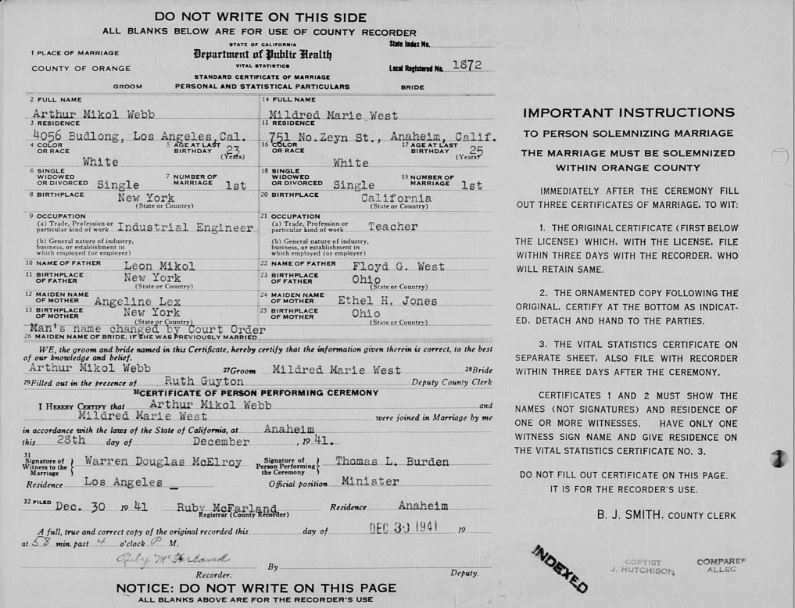 DO NOT WRITE ON THIS SIDE
ALL BLANKS BELOW ARE FOR USE OF COUNTY RECORDER
1 PLACE OF MARRIAGE
COUNTY OF ORANGE
STATE OF CALIFORNIA
Department of Public Health
VITAL STATISTICS
STANDARD CERTIFICATE OF MARRIAGE
State Index No.
Local Registered No. 1872
GROOM PERSONAL AND STATISTICAL PARTICULARS BRIDE
2 FULL NAME
Arthur Mikol Webb
3 RESIDENCE
4056 Budlong, Los Angeles, Cal.
4 COLOR OR RACE White
5 AGE AT LAST BIRTHDAY 23 (Years)
6 SINGLE WIDOWED OR DIVORCED Single
7 NUMBER OF MARRIAGE 1st
8 BIRTHPLACE New York
(State or Country)
9 OCCUPATION
(a) Trade, Profession or particular kind of work Industrial Engineer
(b) General nature of industry, business, or establishment in which employed (or employer)
10 NAME OF FATHER Leon Mikol
11 BIRTHPLACE OF FATHER New York
(State or Country)
12 MAIDEN NAME OF MOTHER Angeline Lex
13 BIRTHPLACE OF MOTHER New York
(State or Country)
14 FULL NAME
Mildred Marie West
15 RESIDENCE
751 No. Zeyn St., Anaheim, Calif.
16 COLOR OR RACE White
17 AGE AT LAST BIRTHDAY 25 (Years)
18 SINGLE WIDOWED OR DIVORCED Single
19 NUMBER OF MARRIAGE 1st
20 BIRTHPLACE California
(State or Country)
21 OCCUPATION
(a) Trade, Profession or particular kind of work Teacher
(b) General nature of industry, business, or establishment in which employed (or employer)
22 NAME OF FATHER Floyd G. West
23 BIRTHPLACE OF FATHER Ohio
(State or Country)
24 MAIDEN NAME OF MOTHER Ethel H. Jones
25 BIRTHPLACE OF MOTHER Ohio
(State or Country)
Man's name changed by Court Order
26 MAIDEN NAME OF BRIDE, IF SHE WAS PREVIOUSLY MARRIED
WE, the groom and bride named in this Certificate, hereby certify that the information given therein is correct, to the best
of our knowledge and belief.
Arthur Mikol Webb 27Groom Mildred Marie West 28Bride
29Filled out in the presence of Ruth Guyton Deputy County Clerk
30CERTIFICATE OF PERSON PERFORMING CEREMONY
I HEREBY CERTIFY that Arthur Mikol Webb and
Mildred Marie West were joined in Marriage by me
in accordance with the laws of the State of California, at Anaheim
this 28th day of December, 1941.
31 Signature of Witness to the Marriage } Warren Douglas McElroy
Signature of Person Performing the Ceremony } Thomas L. Burden
Residence Los Angeles Official position Minister
32 FILED Dec. 30 1941 Ruby McFarland Residence Anaheim
Registrar (County Recorder)
A full, true and correct copy of the original recorded this day of DEC 30 1941 19
at 58 min. past 4 o'clock P M.
Ruby McFarland By
Recorder. Deputy.
NOTICE: DO NOT WRITE ON THIS PAGE
ALL BLANKS ABOVE ARE FOR THE RECORDER'S USE
IMPORTANT INSTRUCTIONS
TO PERSON SOLEMNIZING MARRIAGE
THE MARRIAGE MUST BE SOLEMNIZED
WITHIN ORANGE COUNTY
IMMEDIATELY AFTER THE CEREMONY FILL
OUT THREE CERTIFICATES OF MARRIAGE, TO WIT:
1. THE ORIGINAL CERTIFICATE (FIRST BELOW
THE LICENSE) WHICH, WITH THE LICENSE, FILE
WITHIN THREE DAYS WITH THE RECORDER, WHO
WILL RETAIN SAME.
2. THE ORNAMENTED COPY FOLLOWING THE
ORIGINAL. CERTIFY AT THE BOTTOM AS INDICAT-
ED. DETACH AND HAND TO THE PARTIES.
3. THE VITAL STATISTICS CERTIFICATE ON
SEPARATE SHEET. ALSO FILE WITH RECORDER
WITHIN THREE DAYS AFTER THE CEREMONY.
CERTIFICATES 1 AND 2 MUST SHOW THE
NAMES (NOT SIGNATURES) AND RESIDENCE OF
ONE OR MORE WITNESSES. HAVE ONLY ONE
WITNESS SIGN NAME AND GIVE RESIDENCE ON
THE VITAL STATISTICS CERTIFICATE NO. 3.
DO NOT FILL OUT CERTIFICATE ON THIS PAGE.
IT IS FOR THE RECORDER'S USE.
B. J. SMITH, COUNTY CLERK
INDEXED
COPYIST
J. HUTCHISON
COMPARED
ALLEC